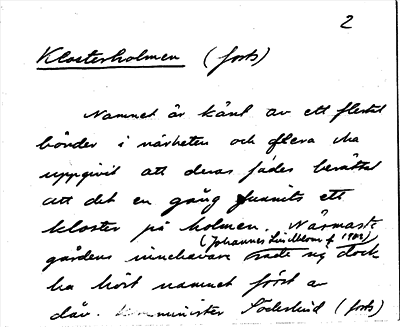 2
Klosterholmen (forts)
Namnet är känt av ett flertal
bönder i närheten och flera ha
uppgivit att deras fäder berättat
att det en gång funnits ett
kloster på holmen. Närmaste
(Johannes Lindblom f. 1902)
gårdens innehavare sade sig dock
ha hört namnet först av
dåv. komminister Söderlind (forts)